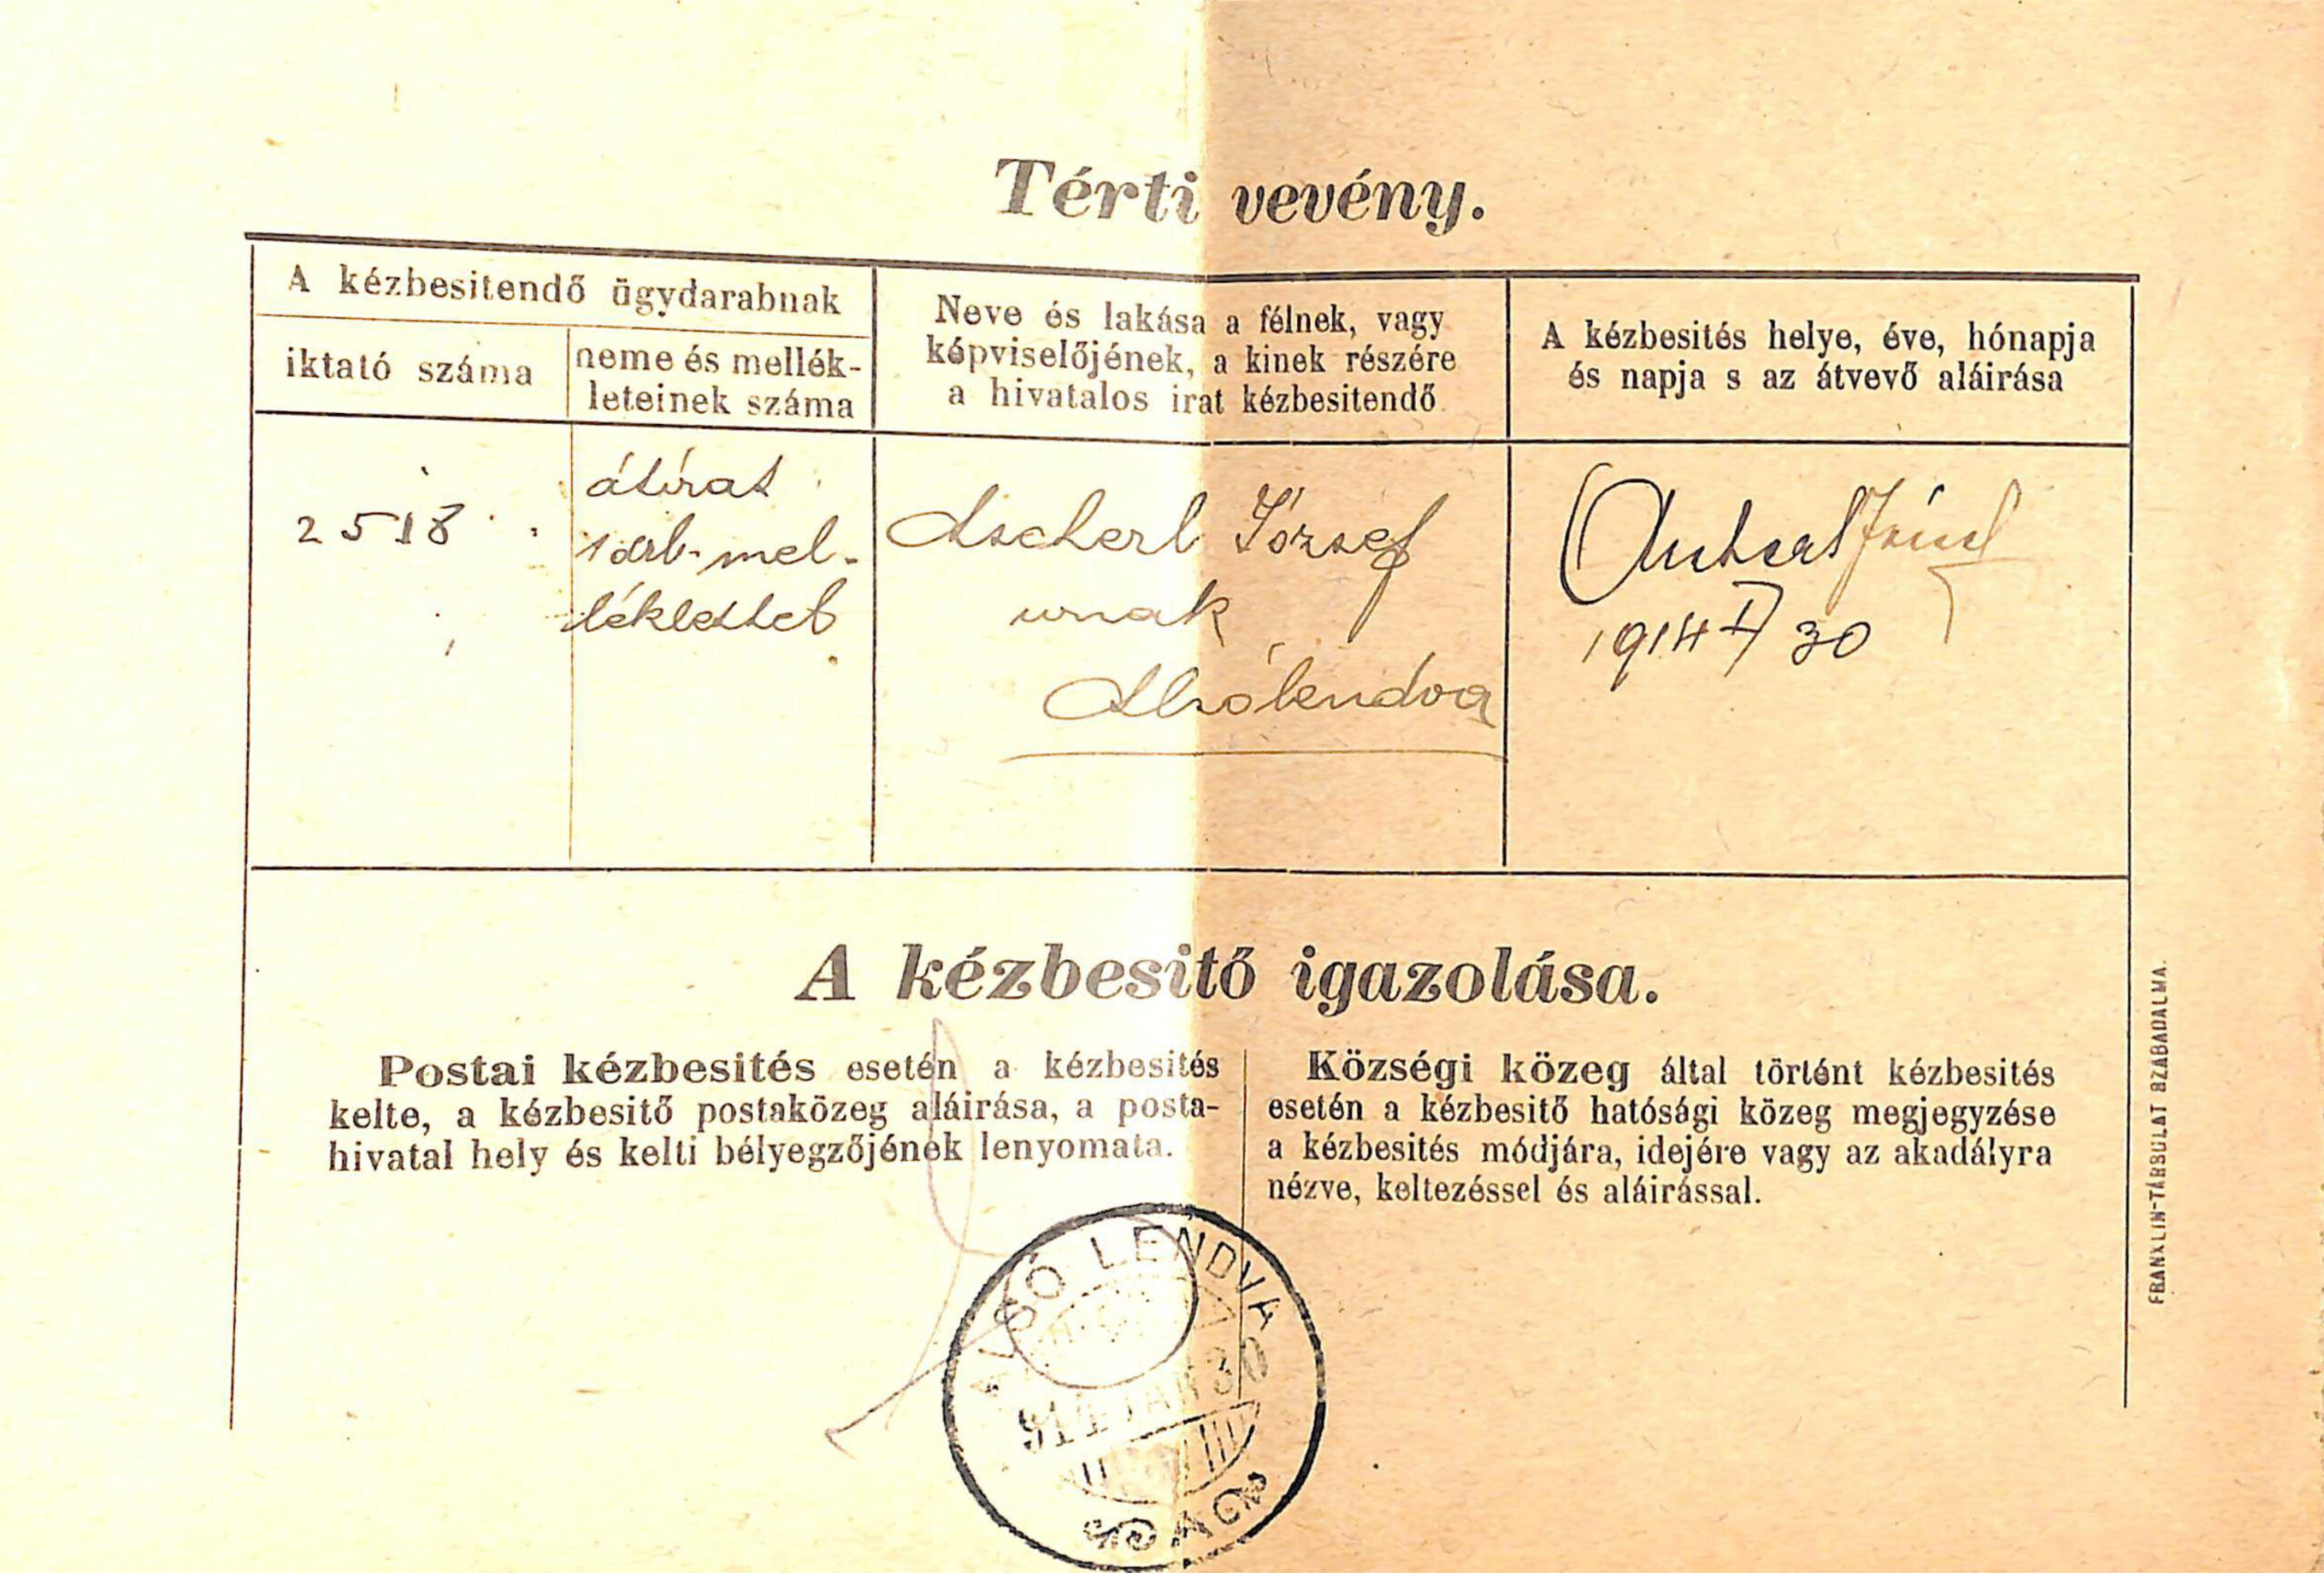 Térti vevény.
A kézbesitendő ügydarabnak
iktató száma
neme és mellék-
leteinek száma
Neve és lakása a félnek, vagy
képviselőjének, a kinek részére
a hivatalos irat kézbesitendő
A kézbesités helye, éve, hónapja
és napja s az átvevő aláirása
2518
átirat
1 drb. mel-
léklettel
Ascherl József
urnak
Alsólendva
József
1914 I/30
A kézbesitő igazolása.
Postai kézbesités esetén a kézbesités
kelte, a kézbesitő postaközeg aláirása, a posta-
hivatal hely és kelti bélyegzőjének lenyomata.
Községi közeg által történt kézbesités
esetén a kézbesitő hatósági közeg megjegyzése
a kézbesités módjára, idejére vagy az akadályra
nézve, keltezéssel és aláirással.
ALSÓ LENDVA
914 JAN 30
FRANKLIN-TÁRSULAT SZABADALMA.